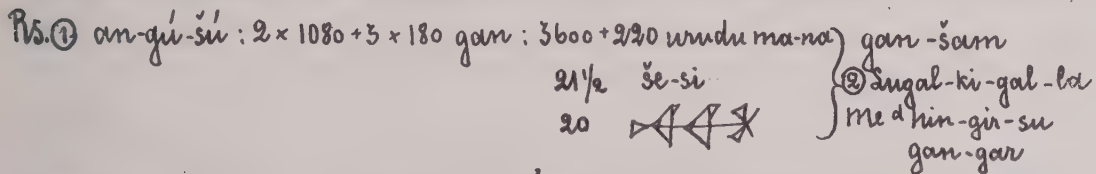 Rs.① an-gú-šú : 2 × 1080 + 3 × 180 gan : 3600 + 220 urudu ma-na } gan-šam
21 1/2 še-si ② Lugal-ki-gal-la
20 me ᵈ nin-gir-su
gan-gar